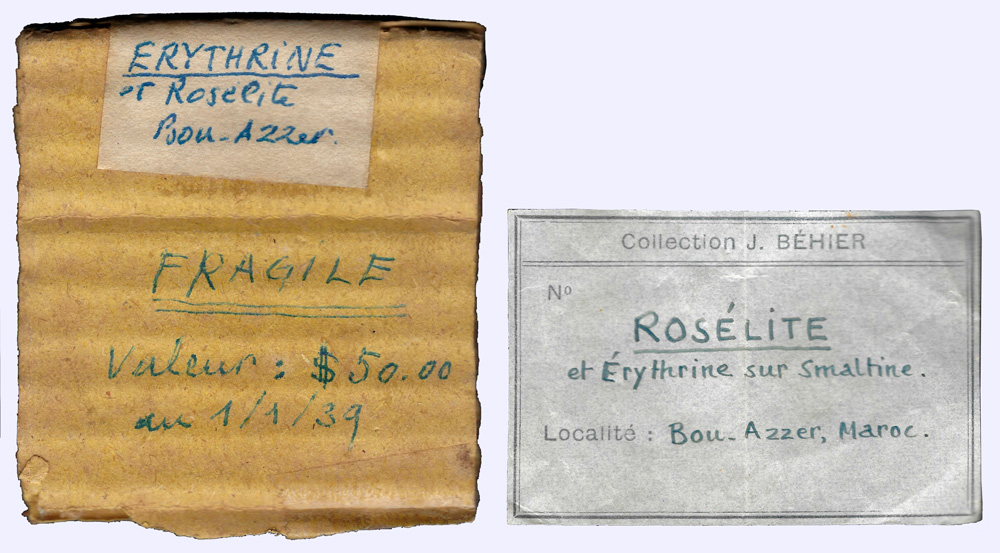 ERYTHRINE
et Rosélite
Bou-Azzer.
FRAGILE
Valeur : $ 50.00
au 1/1/39
Collection J. BÉHIER
Nº
ROSÉLITE
et Érythrine sur Smaltine.
Localité : Bou-Azzer, Maroc.